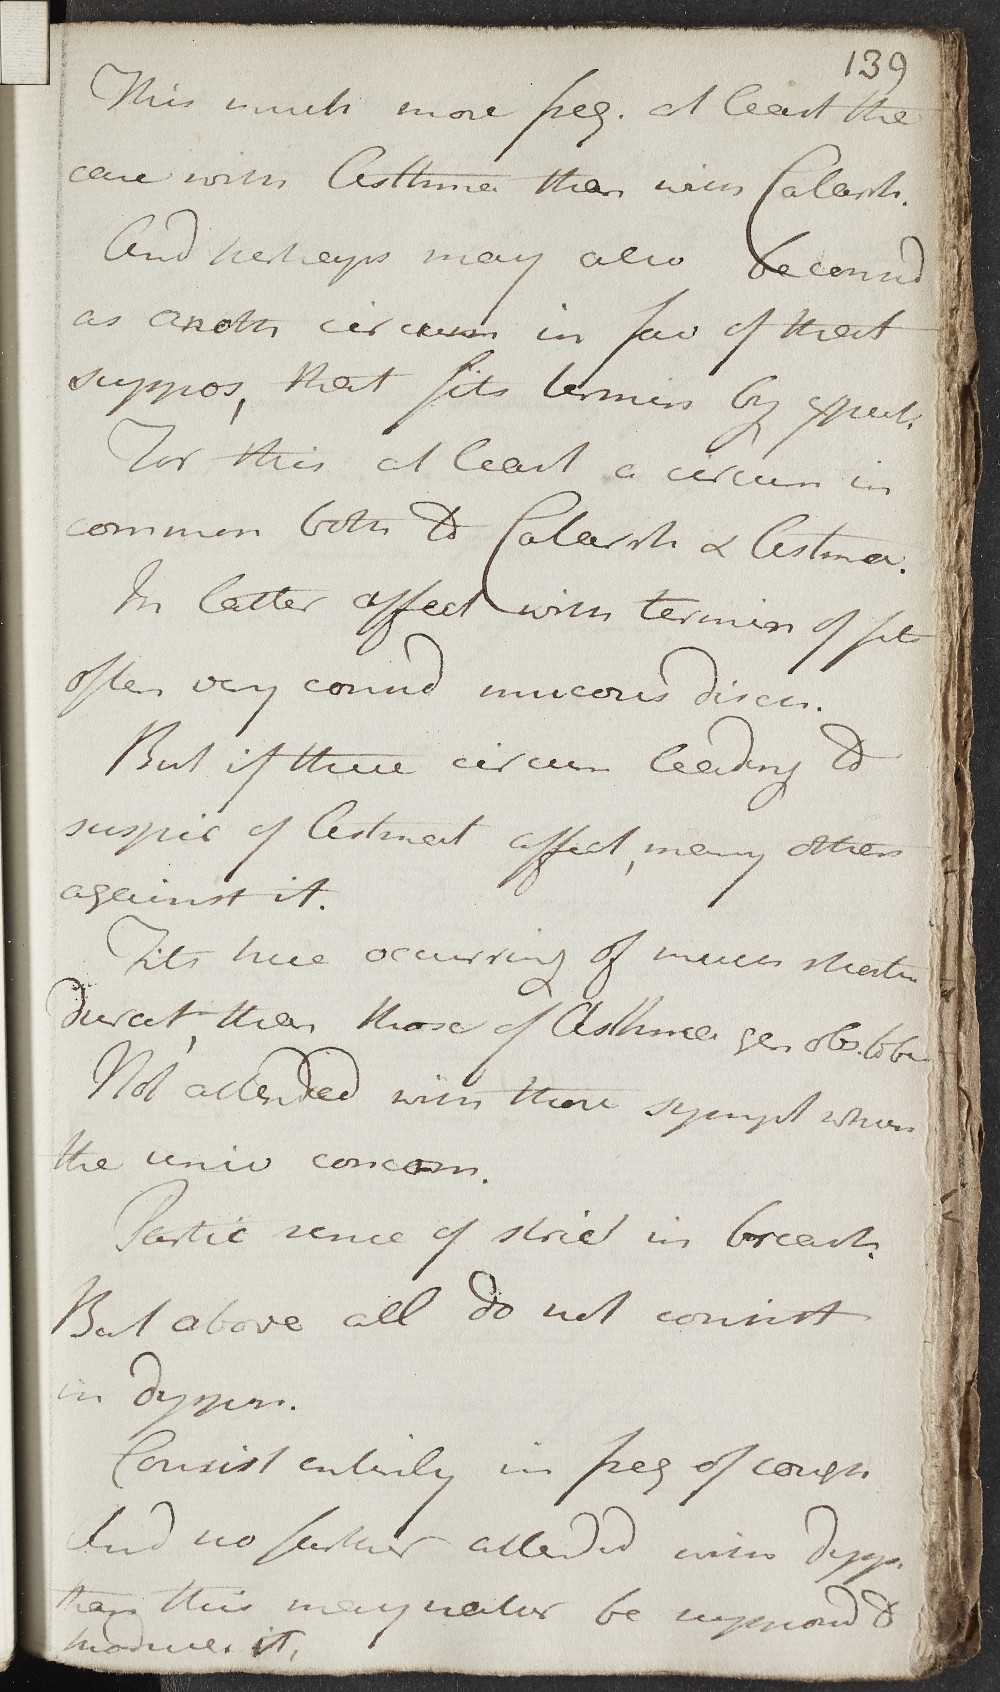 139
This much more freq. at least the
case with Asthma than with Catarrh.
And perhaps may also be consid
as anoth circum in fav of that
suppos, that fits termin by expect.
For this at least a circum in
common both to Catarrh & Astma.
In latter affect with termin of fits
often very consid mucous disch.
But if these circum leading to
suspic of Astmat affect, many others
against it.
Fits here occurring of much shorter
durat, than those of Asthma gen obs. to be
Not attended with those sympt when
the univ concern.
Partic sense of strict in breast.
But above all do not consist
in dyspn.
Consist entirely in freq of cough
And no farther attended with dysp.
than this may natur be suppos'd to
produce it.